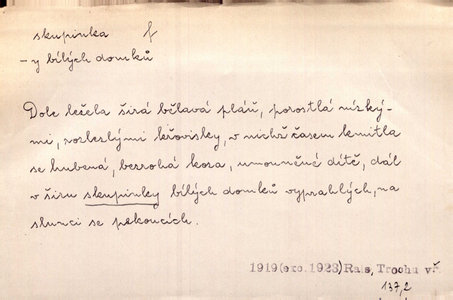 skupinka f
- y bílých domků
Dole ležela širá bělavá pláň, porostlá nízký-
mi, rozběhlými křovisky, v nichž časem kmitla
se hubená, bezrohá koza, umouněné dítě, dál
v širu skupinky bílých domků vyprahlých, na
slunci se pekoucích.
1919(exc.1923) Rais, Trochu vř.
137,2